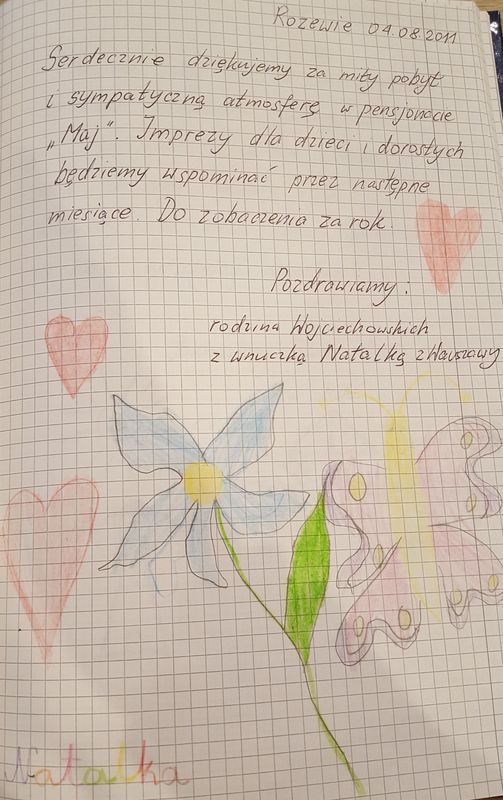 Rozewie 04.08.2011
Serdecznie dziękujemy za miły pobyt
i sympatyczną atmosferę w pensjonacie
„Maj”. Imprezy dla dzieci i dorosłych
będziemy wspominać przez następne
miesiące. Do zobaczenia za rok.
Pozdrawiamy:
rodzina Wojciechowskich
z wnuczką Natalką z Warszawy
Natalka